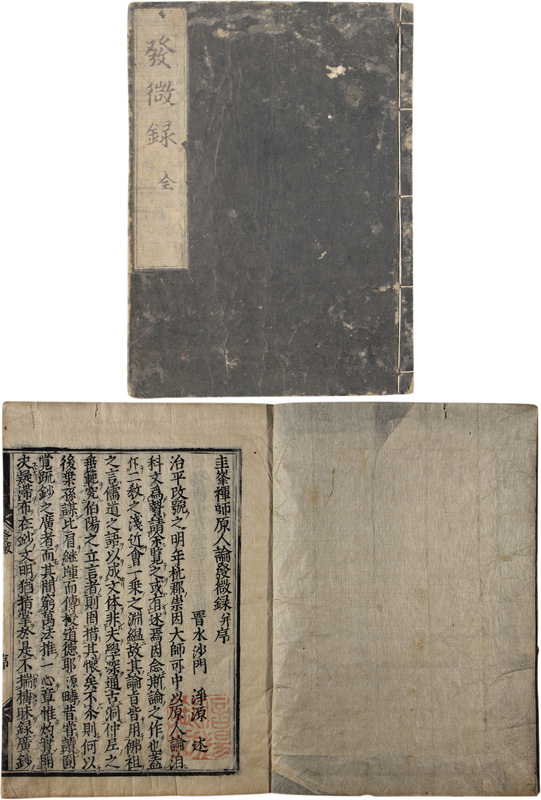 發微録 全
圭峯禪師原人論發微録 并序
晋水沙門 淨源 述
治平改號之明年杭郡崇因大師可中以原人論洎
科文為贄請余覽之或有述焉因念斯論之作也蓋
斥二教之淺近會一乗之淵綱故其論旨皆用佛祖
之言儒道之語以成文体非夫學深通古洞仲尼之
垂範究伯陽之立言者則罔措其懷矣不尒則何以
後葉孫謀比肩繼踵而傳授道德耶源疇昔甞讀圓
覺疏鈔之廣者而其間窮萬法推一心章惟灼實開
決疑滯布在鈔文明猶指掌於是不揣檮昧録廣鈔